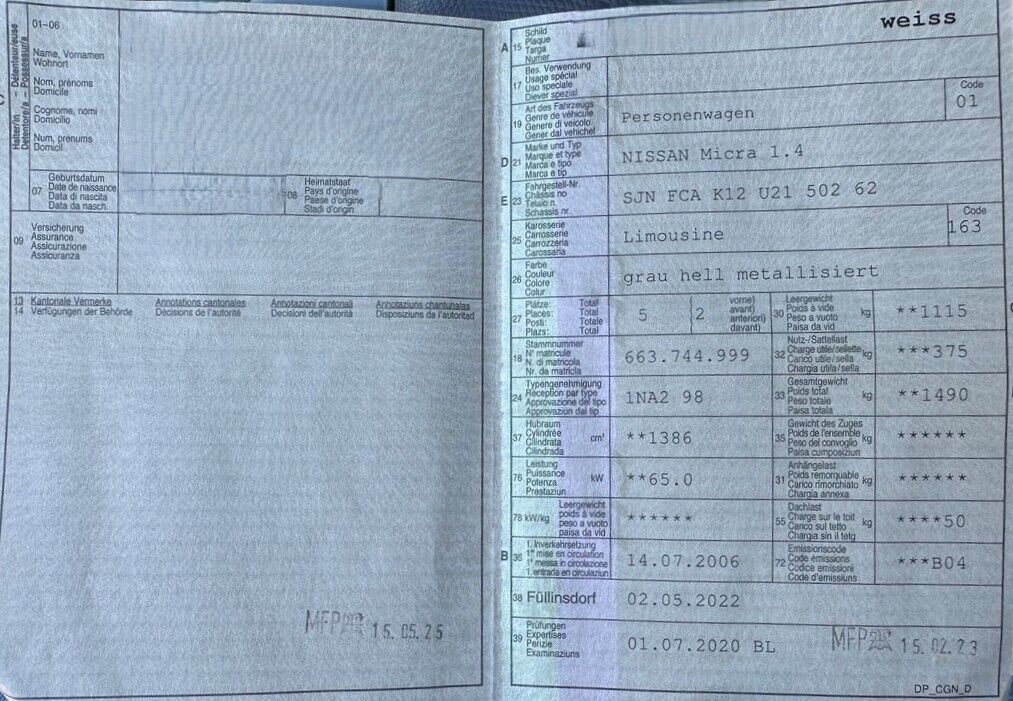 Halter/in – Détenteur/euse
Detentore/a – Possessur/a
01-06
Name, Vornamen
Wohnort
Nom, prénoms
Domicile
Cognome, nomi
Domicilio
Num, prenums
Domicil
07
Geburtsdatum
Date de naissance
Data di nascita
Data da nasch.
08
Heimatstaat
Pays d'origine
Paese d'origine
Stadi d'origin
09
Versicherung
Assurance
Assicurazione
Assicuranza
13 Kantonale Vermerke Annotations cantonales Annotazioni cantonali Annotaziuns chantunalas
14 Verfügungen der Behörde Décisions de l'autorité Decisioni dell'autorità Disposiziuns da l'autoritad
MFP 15.05.25
weiss
A 15
Schild
Plaque
Targa
Numer
17
Bes. Verwendung
Usage spécial
Uso speciale
Diever spezial
19
Art des Fahrzeugs
Genre de véhicule
Genere di veicolo
Gener dal vehichel
Personenwagen
Code
01
D 21
Marke und Typ
Marque et type
Marca e tipo
Marca e tip
NISSAN Micra 1.4
E 23
Fahrgestell-Nr.
Châssis no
Telaio n.
Schassis nr.
SJN FCA K12 U21 502 62
25
Karosserie
Carrosserie
Carrozzeria
Carossaria
Limousine
Code
163
26
Farbe
Couleur
Colore
Colur
grau hell metallisiert
27
Plätze: Total
Places: Total
Posti: Totale
Plazs: Total
5
2
vorne)
avant)
anteriori)
davant)
30
Leergewicht
Poids à vide
Peso a vuoto
Paisa da vid
kg
**1115
18
Stammnummer
N° matricule
N. di matricola
Nr. da matricla
663.744.999
32
Nutz-/Sattellast
Charge utile/sellette
Carico utile/sella
Chargia utila/sella
kg
***375
24
Typengenehmigung
Réception par type
Approvazione del tipo
Approvaziun dal tip
1NA2 98
33
Gesamtgewicht
Poids total
Peso totale
Paisa totala
kg
**1490
37
Hubraum
Cylindrée
Cilindrata
Cilindrada
cm³
**1386
35
Gewicht des Zuges
Poids de l'ensemble
Peso del convoglio
Paisa cumposiziun
kg
******
76
Leistung
Puissance
Potenza
Prestaziun
kW
**65.0
31
Anhängelast
Poids remorquable
Carico rimorchiato
Chargia annexa
kg
******
78 kW/kg
Leergewicht
poids à vide
peso a vuoto
paisa da vid
******
55
Dachlast
Charge sur le toit
Carico sul tetto
Chargia sin il tetg
kg
****50
B 36
1. Inverkehrsetzung
1re mise en circulation
1a messa in circolazione
1. entrada en circulaziun
14.07.2006
72
Emissionscode
Code émissions
Codice emissioni
Code d'emissiuns
***B04
38 Füllinsdorf
02.05.2022
39
Prüfungen
Expertises
Perizie
Examinaziuns
01.07.2020 BL
MFP 15.02.23
DP_CGN_D